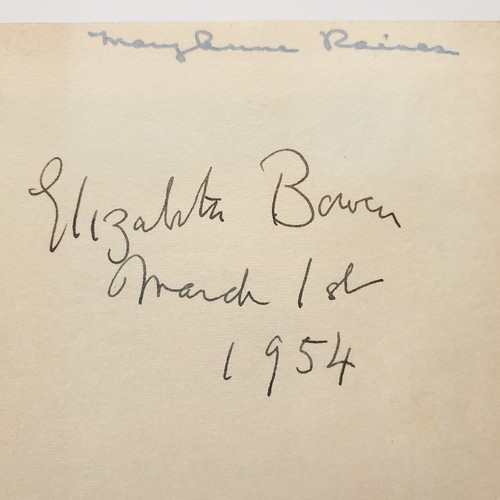 MaryAnne Raines
Elizabeth Bowen
March 1st
1954